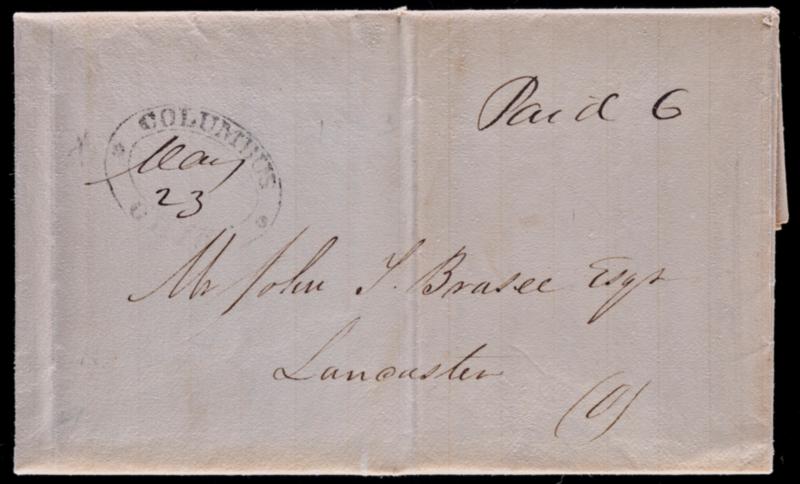 COLUMBUS
May
23
Paid 6
Mr John T. Brasee Esqr
Lancaster
(O)